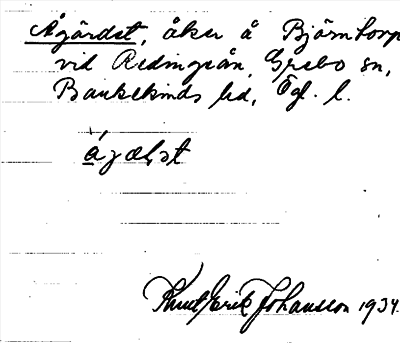 Ågärdet, åker å Björntorp
vid Redingsån, Grebo sn,
Bankekinds hd, Ögl. l.
ágæḷət
Knut Erik Johansson 1934.